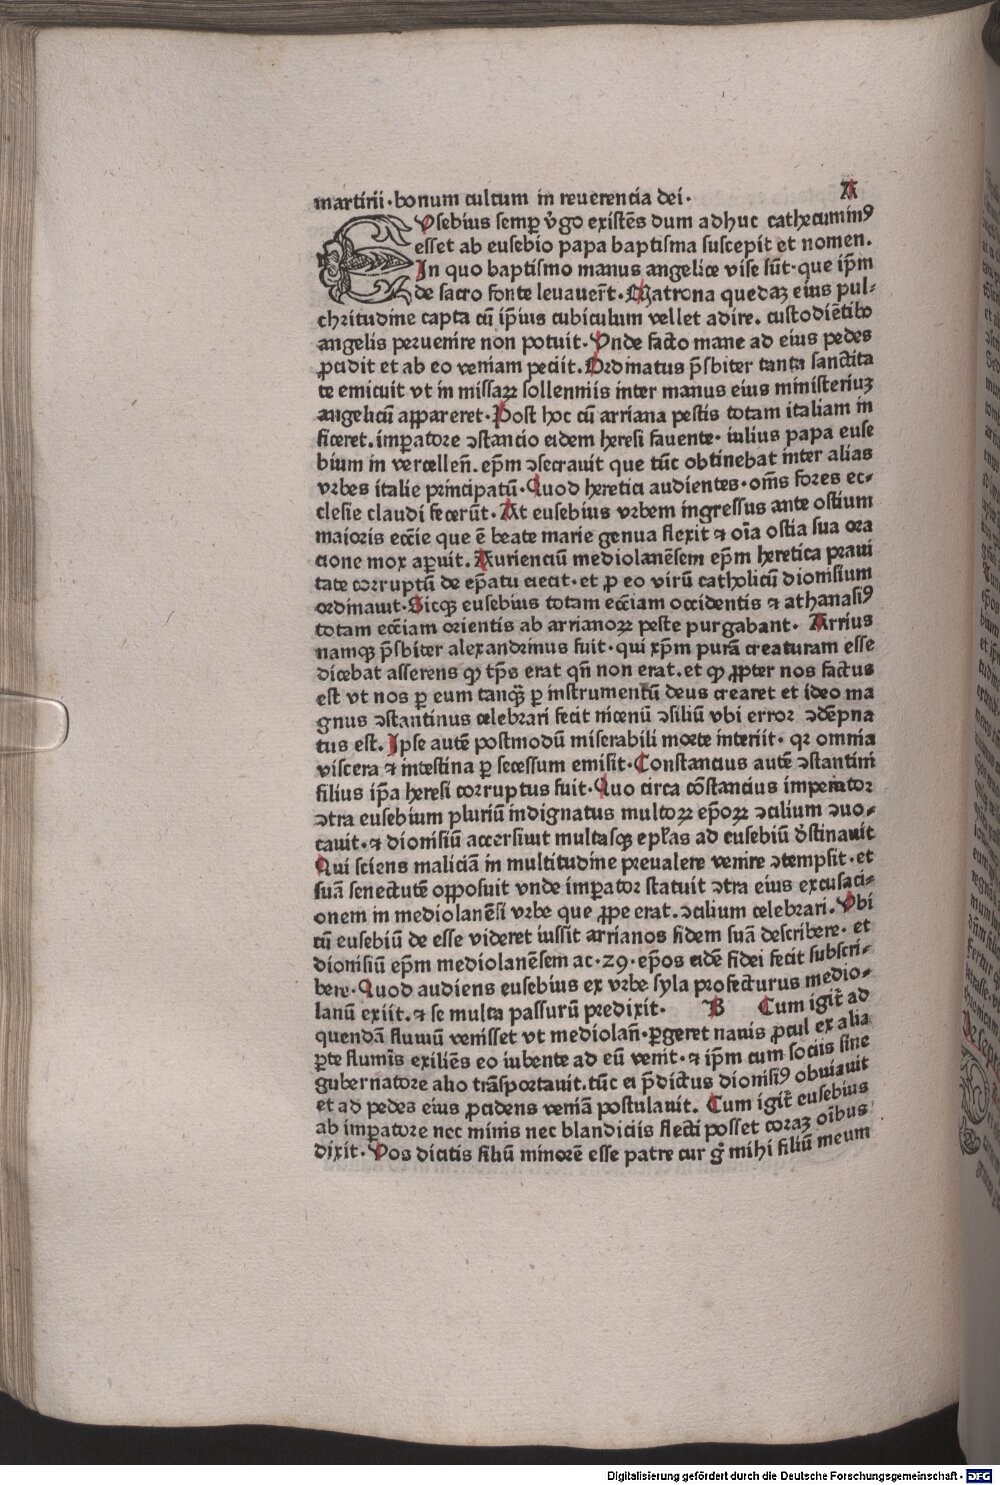 martirii·bonum cultum in reuerencia dei· A
EVsebius semꝑ v̓go existēs dum adhuc cathecuminꝰ
esset ab eusebio papa baptisma suscepit et nomen.
In quo baptismo manus angelice vise sūt·que ip̄m
de sacro fonte leuauer̄t·Matrona quedaꝫ eius pul⸗
chritudine capta cū ip̄ius cubiculum vellet adire. custodiētibꝰ
angelis peruenire non potuit·Vnde facto mane ad eius pedes
ꝓcidit et ab eo veniam peciit.Ordinatus p̄sbiter tanta sanctita
te emicuit vt in missaꝝ sollenniis inter manus eius ministeriuꝫ
angelicū appareret·Post hoc cū arriana pestis totam italiam in
ficeret.imꝑatore ꝯstancio eidem heresi fauente·iulius papa euse
bium in vercelleñ.ep̄m ꝯsecrauit que tūc obtinebat inter alias
vrbes italie principatū·Quod heretici audientes·om̄s fores ec⸗
clesie claudi fecerūt·At eusebius vrbem ingressus ante ostium
maioris ecc̄ie que ē beate marie genua flexit ⁊ oīa ostia sua ora
cione mox aꝑuit.Auriencīu mediolanēsem ep̄m heretica praui
tate corruptū de ep̄atu eiecit·et ꝓ eo virū catholicū dionisium
ordinauit·Sicqꝫ eusebius totam ecc̄iam occidentis ⁊ athanasiꝰ
totam ecc̄iam orientis ab arrianoꝝ peste purgabant· Arrius
namqꝫ p̄sbiter alexandrinus fuit·qui xp̄m purā creaturam esse
dicebat asserens ꝙ tp̄s erat qn̄ non erat.et ꝙ ꝓpter nos factus
est vt nos ꝑ eum tanqꝫ̄ ꝑ instrumentū deus crearet et ideo ma
gnus ꝯstantinus celebrari fecit nicenū ꝯsiliū vbi error ꝯdēpna
tus est.Ipse autē postmodū miserabili morte interiit·qꝛ omnia
viscera ⁊ intestina ꝑ secessum emisit·Constancius autē ꝯstantini
filius ip̄a heresi corruptus fuit·Quo circa cōstancius imperator
ꝯtra eusebium pluriū indignatus multoꝝ ep̄oꝝ ꝯcilium ꝯuo⸗
cauit·⁊ dionisiū accersiuit multasqꝫ ep̄las ad eusebiū d̓stinauit
Qui sciens maliciā in multitudine preualere venire ꝯtempsit·et
suā senectutē opposuit vnde imꝑator statuit ꝯtra eius excusaci⸗
onem in mediolanēsi vrbe que ꝓpe erat.ꝯcilium celebrari.Vbi
cū eusebiū de esse videret iussit arrianos fidem suā describere·et
dionisiū ep̄m mediolanēsem ac·29·ep̄os eidē fidei fecit subscri⸗
bere·Quod audiens eusebius ex vrbe syla profecturus medio⸗
lanū exiit.⁊ se multa passurū predixit· B Cum igit̄ ad
quendā fluuiū venisset vt mediolañ·ꝑgeret nauis ꝓcul ex alia
ꝑte fluminis exiliēs eo iubente ad eū venit·⁊ ip̄m cum sociis sine
gubernatore alio trāsportauit.tūc ei p̄dictus dionisiꝰ obuiauit
et ad pedes eius ꝓcidens veniā postulauit. Cum igit̄ eusebius
ab imꝑatore nec minis nec blandiciis flecti posset coraꝫ oībus
dixit·Vos dicitis filiū minorē esse patre cur g̊ mihi filiū meum
Digitalisierung gefördert durch die Deutsche Forschungsgemeinschaft - DFG